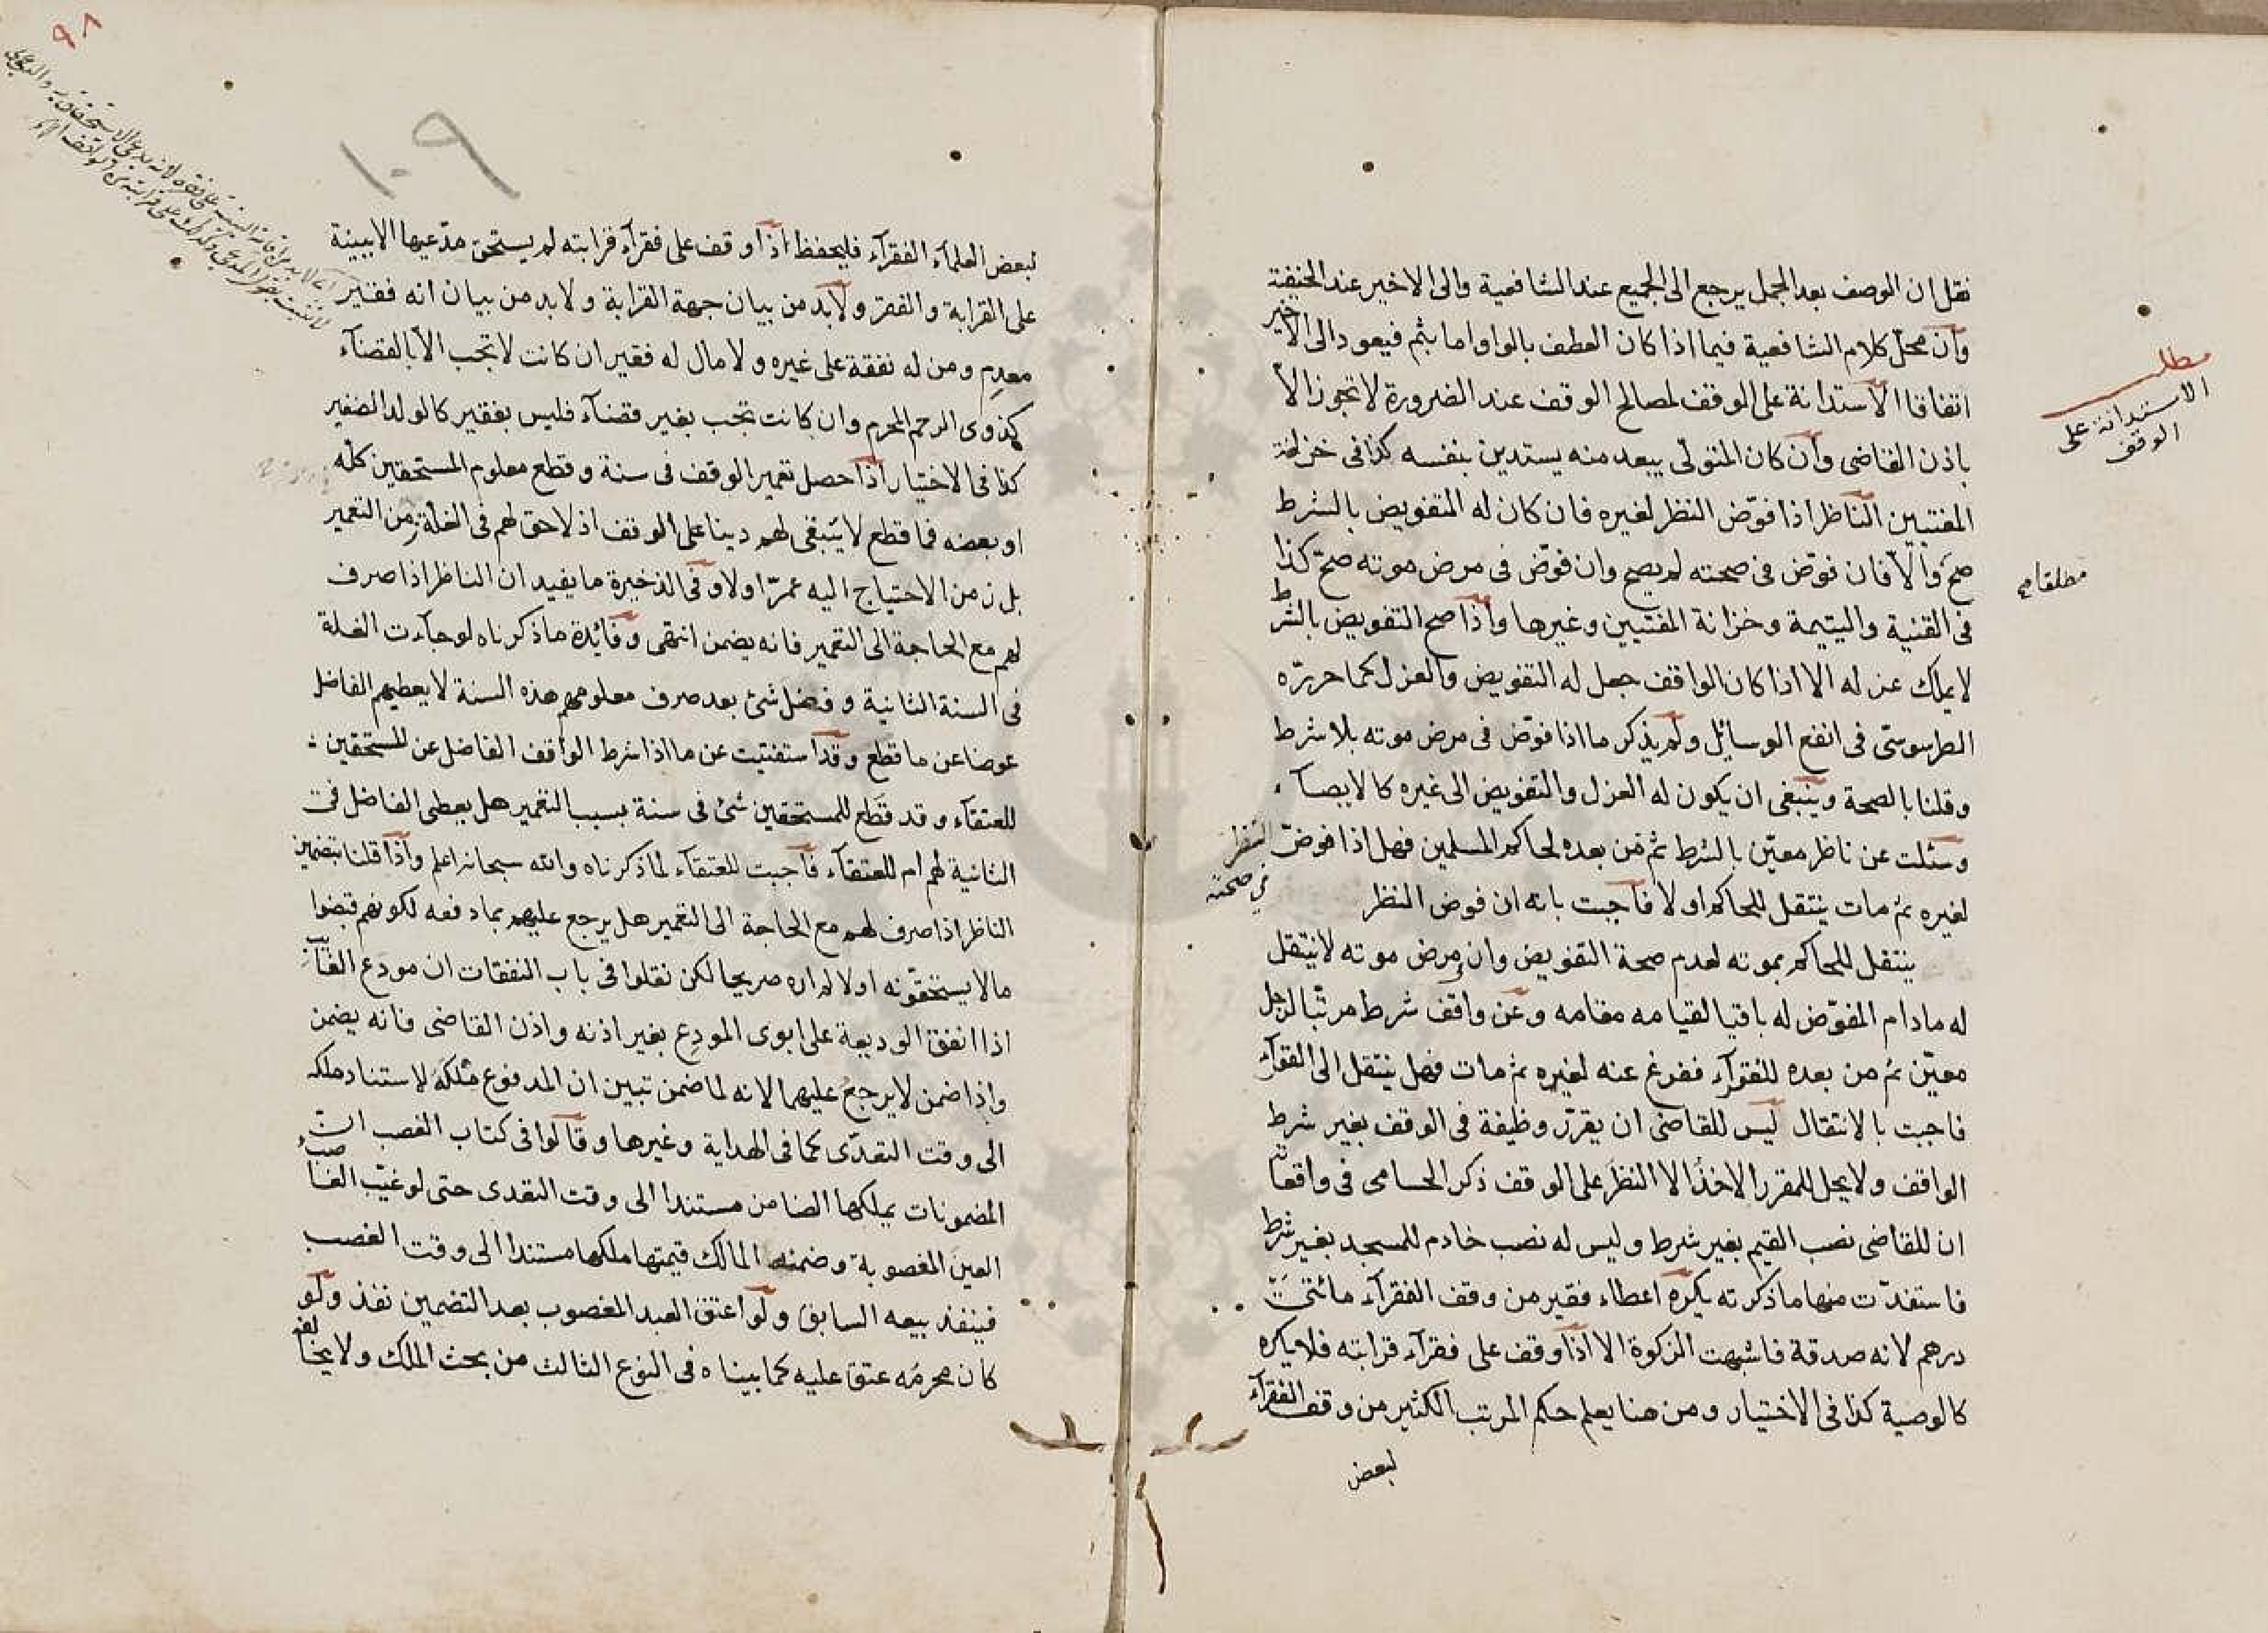 نقل ان الوصف بعد الجمل يرجع الى الجميع عند الشافعية والى الاخير عند الحنيفة
وان محل كلام الشافعية فيما اذا كان العطف بالواو اما بثم فيعود الى الاخير
اتفاقا الاستدانة على الوقف لمصالح الوقف عند الضرورة لا تجوز الا
باذن القاضى وان كان المتولى يبعد منه يستدين بنفسه كذا فى خزانة
المفتيين الناظر اذا فوّض النظر لغيره فان كان له التفويض بالشرط
صح والا فان فوّض فى صحته لم يصح وان فوّض فى مرض موته صح كذا
فى القنية واليتيمة وخزانة المفتيين وغيرها واذا صح التفويض بالشرط
لا يملك عزله الا اذا كان الواقف جعل له التفويض والعزل كما حررّه
الطرسوسّى فى انفع الوسائل ولم يذكر ما اذا فوّض فى مرض موته بلا شرط
وقلنا بالصحة وينبغى ان يكون له العزل والتفويض الى غيره كالايصاء
وسئلت عن ناظر معيّن بالشرط ثم من بعده لحاكم المسلمين فهل اذا فوضّ النظر
لغيره ثم مات ينتقل للحاكم او لا فاجبت بانه ان فوض النظر
فى صحته
ينتقل للحاكم بموته لعدم صحة التفويض وان مرض موته لا ينتقل
له مادام المفوّض له باقيا لقيامه مقامه وعن واقف شرط مرتّبا لرجل
معيّن ثم من بعده للفقرآء ففرغ عنه لغيره ثم مات فهل ينتقل الى الفقرآء
فاجبت بالانتقال ليس للقاضى ان يقرّر وظيفة فى الوقف بغير شرط
الواقف ولا يحل للمقرر الاخذ الا النظر على الوقف ذكر الحسامى فى واقعاته
ان للقاضى نصب القيم بغير شرط وليس له نصب خادم للمسجد بغير شرط
فاستفدّت منها ما ذكرته يكره اعطاء فقير من وقف الفقرآء مائتى
درهم لانه صدقة فاشبهت الزكوة الا اذا وقف على فقرآء قرابته فلا يكره
كالوصية كذا فى الاختيار ومن هنا يعلم حكم المرتب الكثير من وقف الفقرآء
لبعض
مطلب
الاستدانة على
الوقف
مطلقا
لبعض العلمآء الفقرآء فليحفظ اذا وقف على فقرآء قرابته لم يستحق مدّعيها الا ببينة
على القرابة والفقر ولا بد من بيان جهة القرابة ولا بد من بيان انه فقير
معدم ومن له نفقة على غيره ولا مال له فقير ان كانت لا تجب الا بالقضآء
كذوى الرحم المحرم وان كانت تجب بغير قضآء فليس بفقير كالولد الصغير
كذا فى الاختيار اذا حصل تعمير الوقف فى سنة وقطع معلوم المستحقين كله
او بعضه فما قطع لا يبقى لهم دينا على الوقف اذ لا حق لهم فى الغلة زمن التعمير
بل زمن الاحتياج اليه عمرّ او لا وفى الذخيرة ما يفيد ان الناظر اذا صرف
لهم مع الحاجة الى التعمير فانه يضمن انتهى وفائدة ما ذكرناه لو جآءت الغلة
فى السنة الثانية وفضل شئ بعد صرف معلومهم هذه السنة لا يعطيهم الفاضل
عوضا عن ما قطع وقد استفتيت عن ما اذا شرط الواقف الفاضل عن المستحقين
للعتقآء وقد قطع للمستحقين شئ فى سنة بسبب التعمير هل يعطى الفاضل فى
الثانية لهم ام للعتقآء فاجبت للعتقآء لما ذكرناه والله سبحانه اعلم واذا قلنا بتضمين
الناظر اذا صرف لهم مع الحاجة الى التعمير هل يرجع عليهم بما دفعه لكونهم قبضوا
مالا يستحقونه او لا لم اره صريحا لكن نقلوا فى باب النفقات ان مودع الغائب
اذا انفق الوديعة على ابوى المودِع بغير اذنه واذن القاضى فانه يضمن
واذا ضمن لا يرجع عليهما لانه لما ضمن تبين ان المدفوع ملكه لاستناد ملكه
الى وقت التعدّى كما فى الهداية وغيرها وقالوا فى كتاب الغصب ان
المضمونات يملكها الضامن مستندا الى وقت التعدى حتى لو غيّب الغاصب
العين المغصوبة وضمنه المالك قيمتها ملكها مستندا الى وقت الغصب
فينفذ بيعه السابق ولو اعتق العبد المغصوب بعد التضمين نفذ ولو
كان محرمه عتق عليه كما بيناه فى النوع الثالث من بحث الملك ولا يخالفه
٩٨
١٠٩